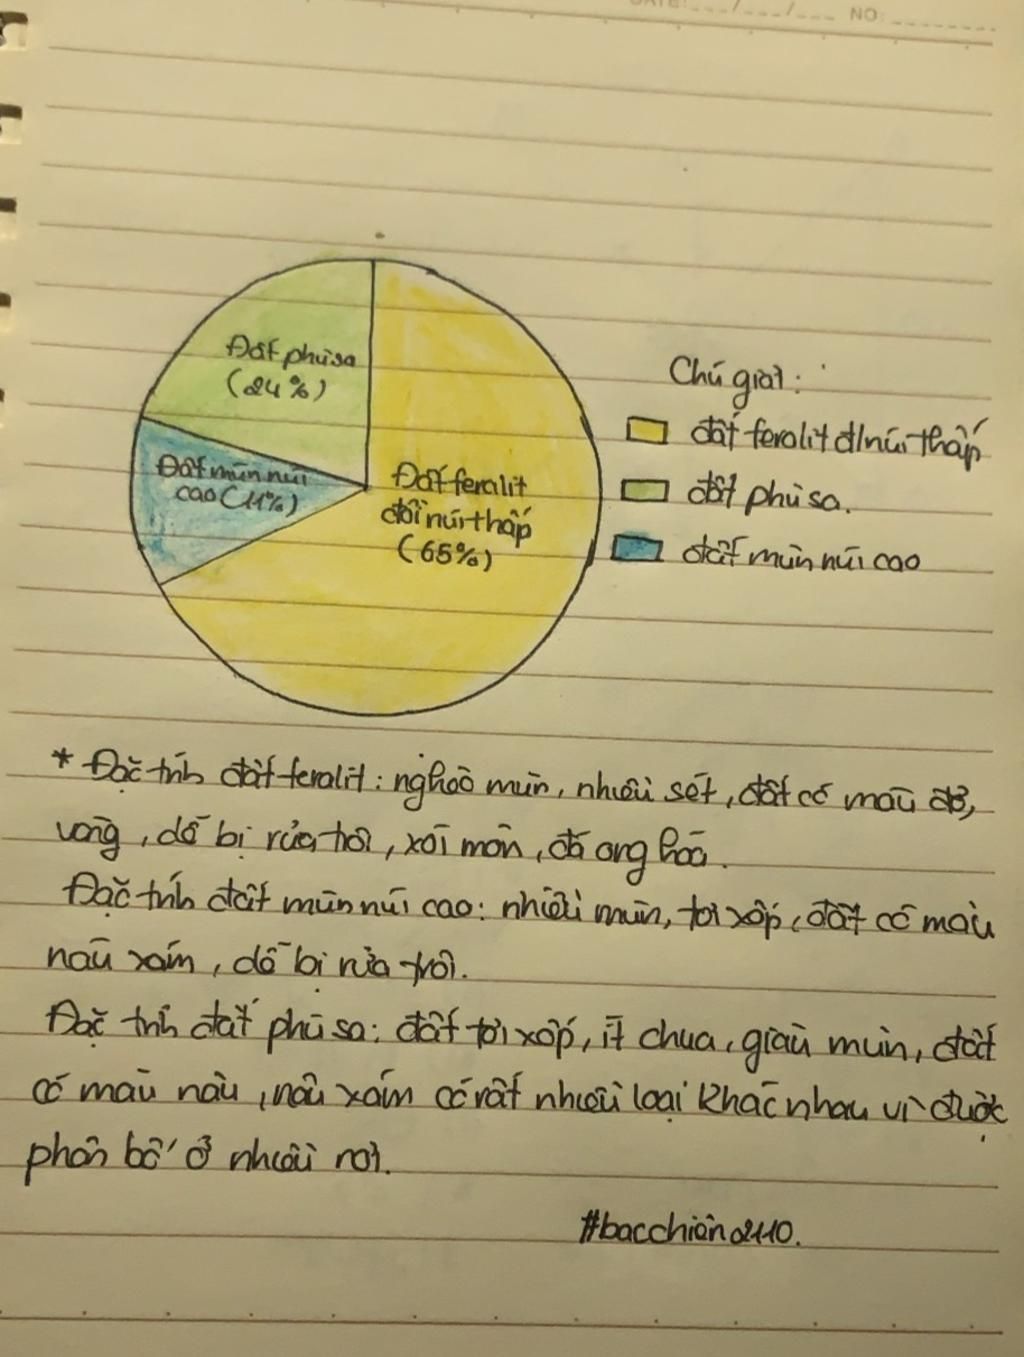 DATE: ___/___/___ NO:
Đất phù sa
(24%)
Đất mùn núi
cao (11%)
Đất feralit
đồi núi thấp
(65%)
Chú giải:
đất feralit đ/núi thấp
đất phù sa.
đất mùn núi cao
* Đặc tính đất feralit: nghèo mùn, nhiều sét, đất có màu đỏ,
vàng, dễ bị rửa trôi, xói mòn, đá ong hóa.
Đặc tính đất mùn núi cao: nhiều mùn, tơi xốp, đất có màu
nâu xám, dễ bị rửa trôi.
Đặc tính đất phù sa: đất tơi xốp, ít chua, giàu mùn, đất
có màu nâu, nâu xám có rất nhiều loại khác nhau vì được
phân bố ở nhiều nơi.
#bacchien2110.